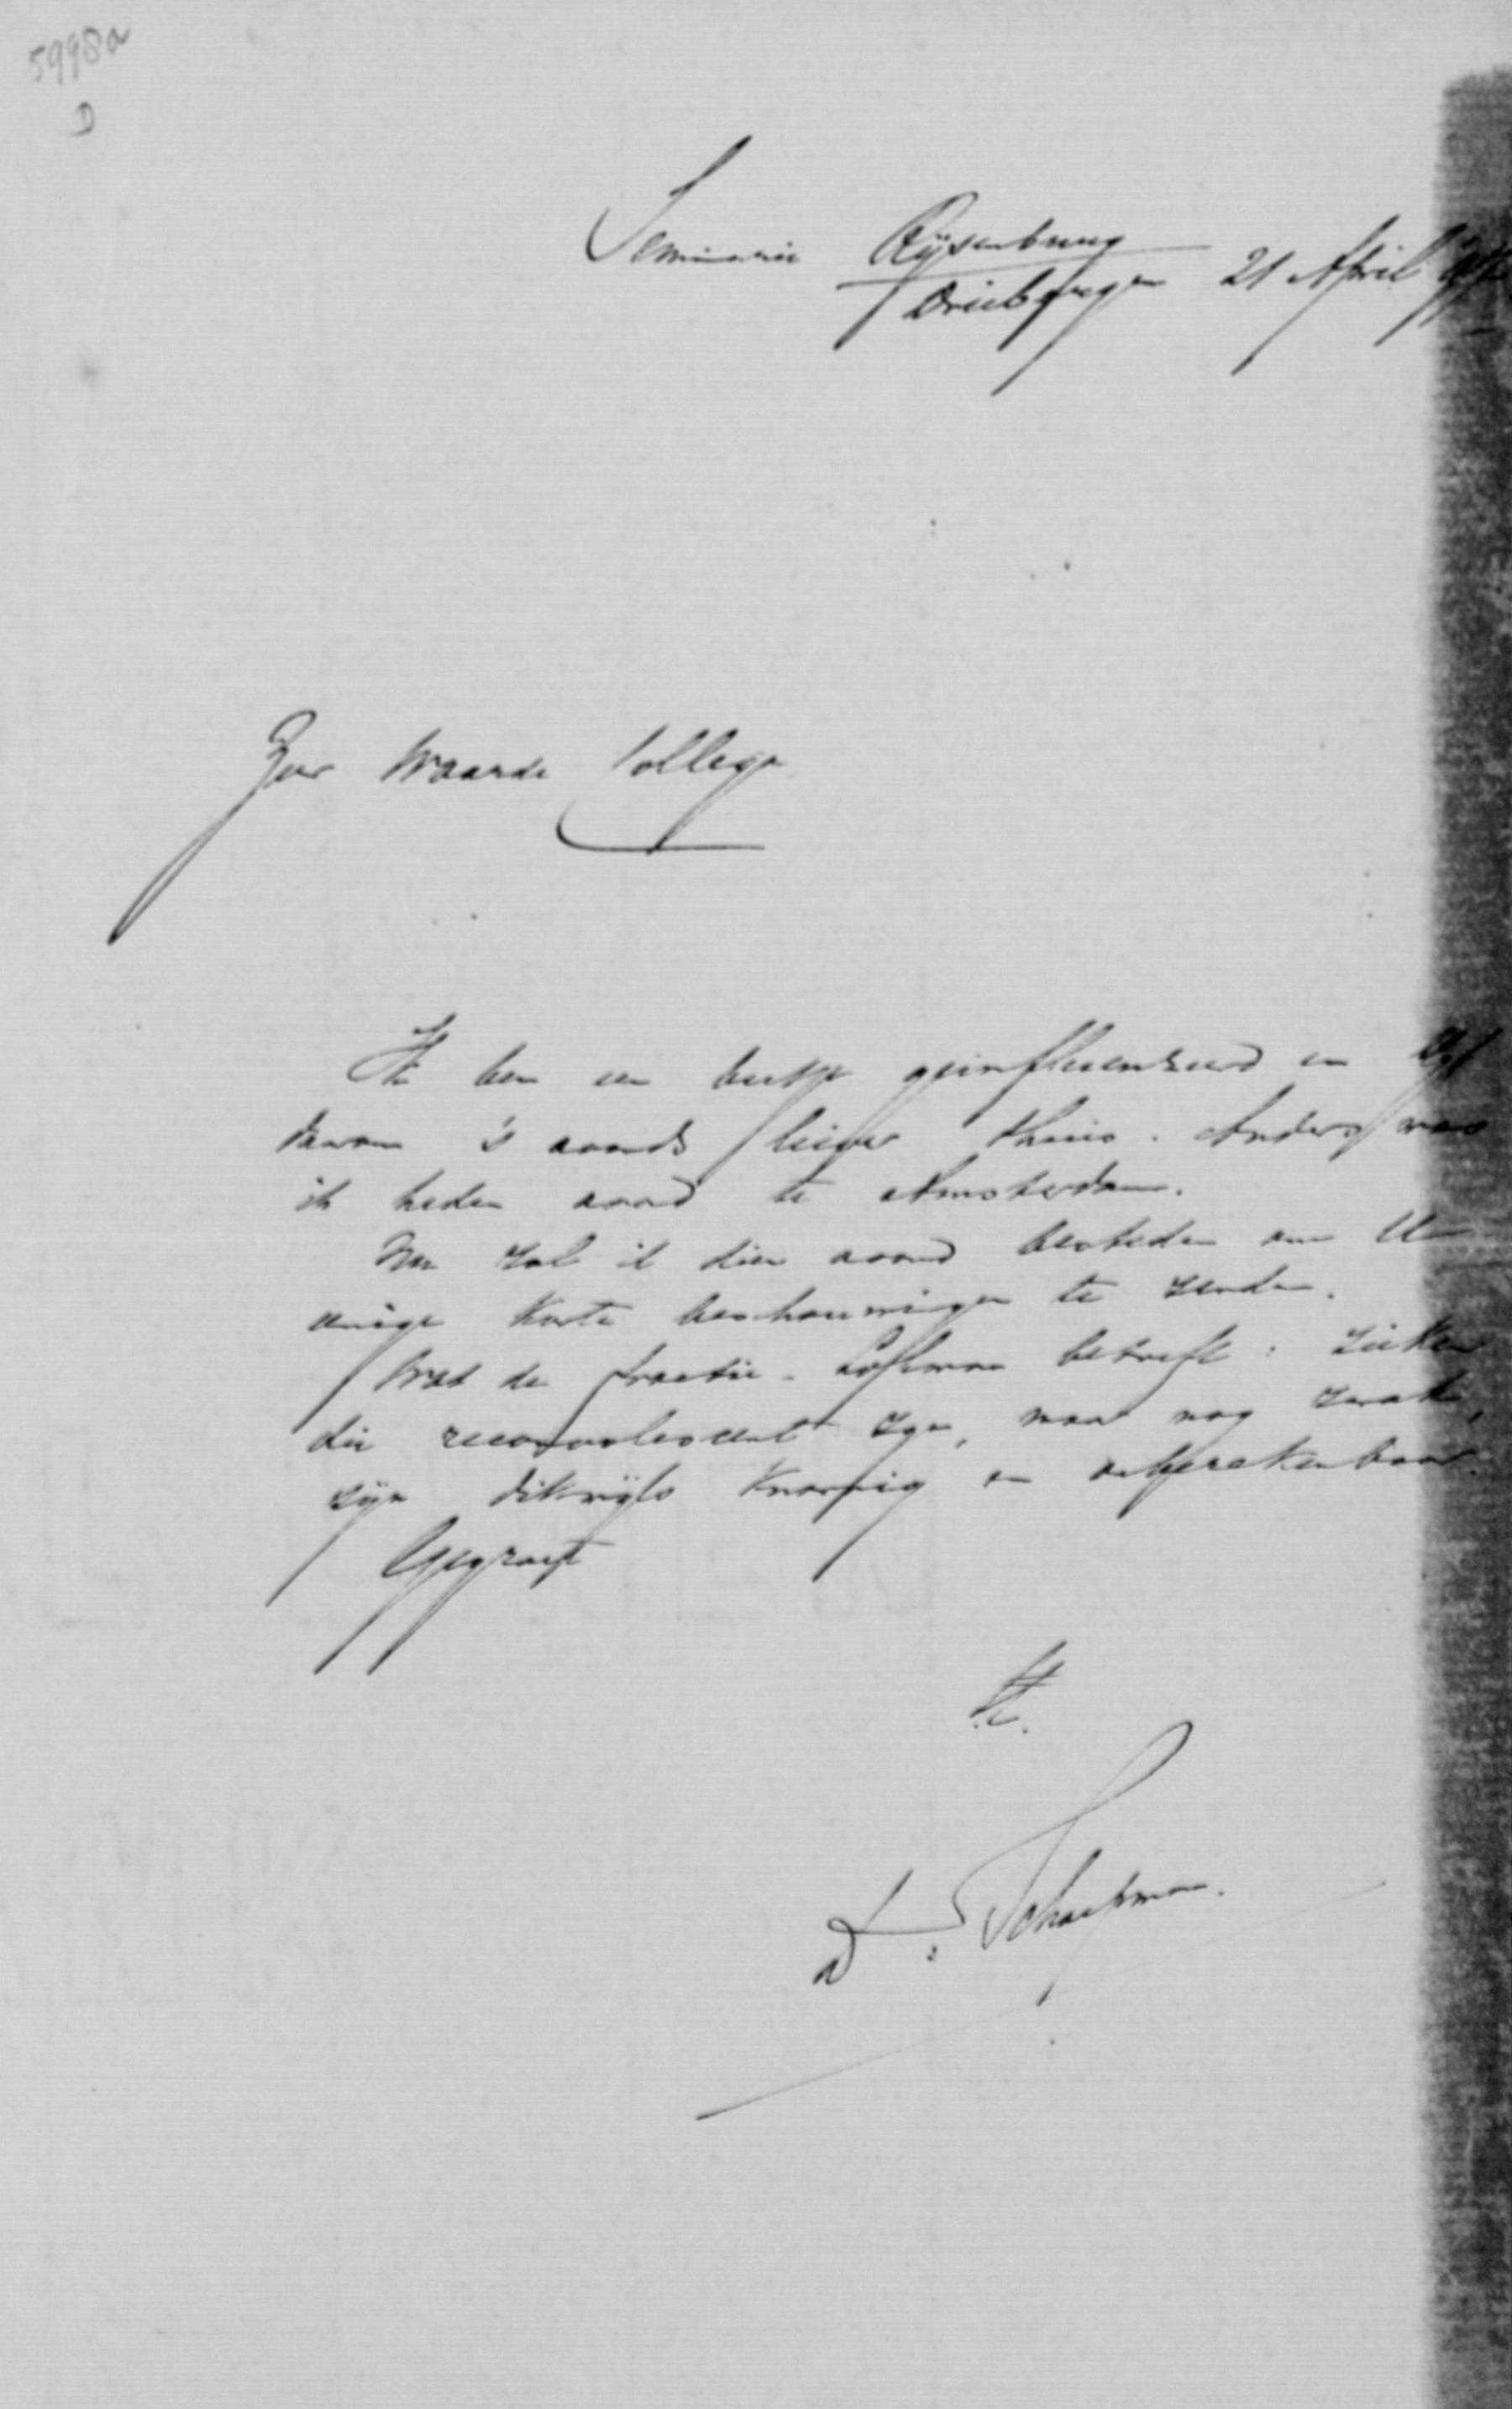 5998a
D
Seminarie Rijsenburg
Driebergen 21 April
Zeer Waarde Collega
Ik ben een beetje geinfluenzeerd en blijf
daarom 's avonds liever thuis. Anders was
ik heden avond te Amsterdam.
Nu zal ik dien avond besteden om U
enige korte beschouwingen te zenden.
Wat de fractie-Lohman betreft: zieken
die reconvalescent zijn, maar nog zwak,
zijn dikwijls knorrig en onspreekbaar.
Gegroet
tt.
Dr. Schaepman.